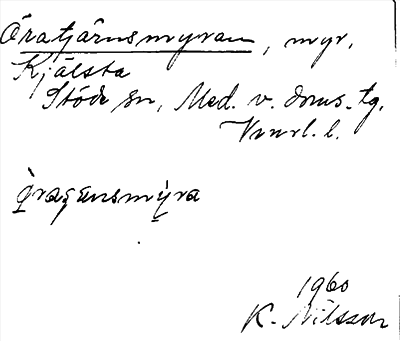 Öratjärnsmyran, myr.
Kjälsta
Stöde sn, Med. v. doms. tg.
Vnrl. l.
Q̀raʂensmy̠ra
1960
K. Nilsson